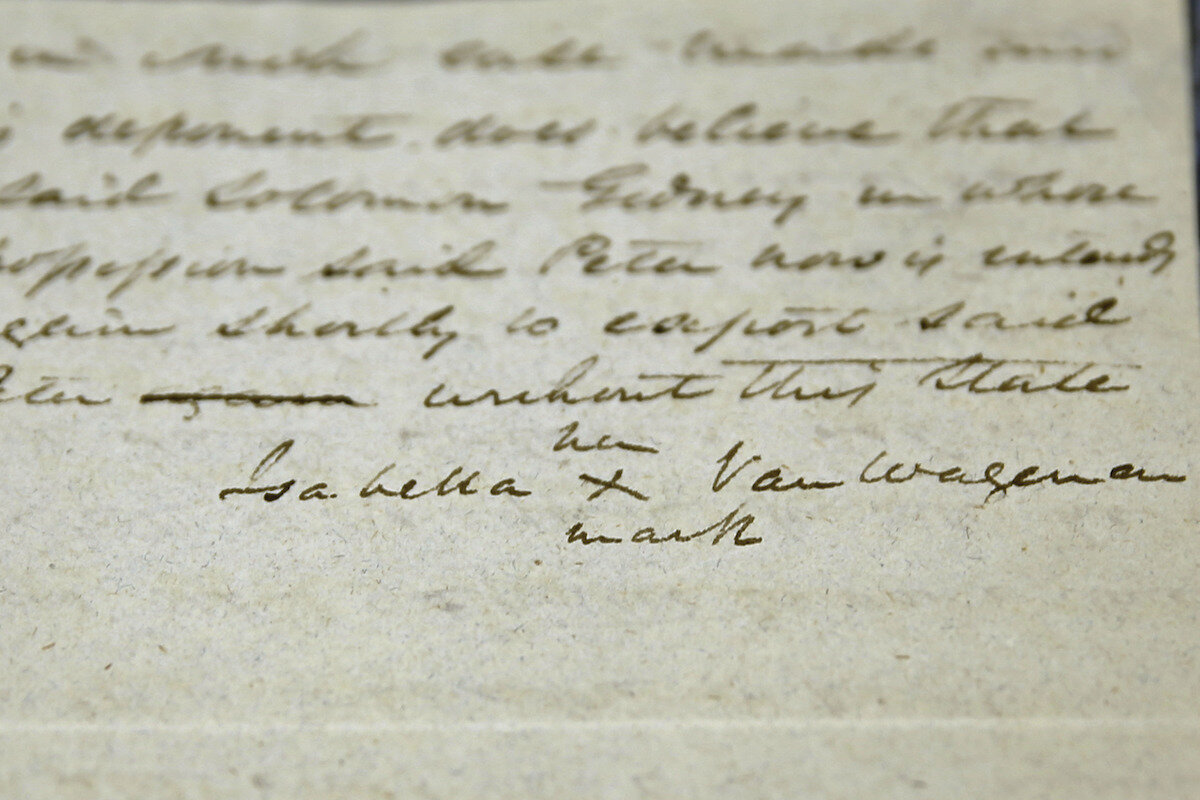 in such case made
deponent does believe that
said Solomon Gidney in whose
possession said Peter now is intends
again shortly to export said
Peter again without this State
her
Isabella X Van Wagenan
mark